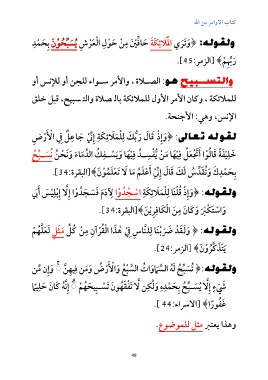 كتاب الأوامر من الله
ولقوله: ﴿وَتَرَى الْمَلَائِكَةَ حَافِّينَ مِنْ حَوْلِ الْعَرْشِ يُسَبِّحُونَ بِحَمْدِ
رَبِّهِمْ﴾ [الزمر:45].
والتسبيح هو: الصلاة ، والأمر سواء للجن أو للإنس أو
للملائكة ، وكان الأمر الأول للملائكة بالصلاة والتسبيح، قبل خلق
الإنس، وهي: الأجنحة.
لقوله تعالى: ﴿وَإِذْ قَالَ رَبُّكَ لِلْمَلَائِكَةِ إِنِّي جَاعِلٌ فِي الْأَرْضِ
خَلِيفَةً قَالُوا أَتَجْعَلُ فِيهَا مَنْ يُفْسِدُ فِيهَا وَيَسْفِكُ الدِّمَاءَ وَنَحْنُ نُسَبِّحُ
بِحَمْدِكَ وَنُقَدِّسُ لَكَ قَالَ إِنِّي أَعْلَمُ مَا لَا تَعْلَمُونَ﴾[البقرة:34].
ولقوله: ﴿وَإِذْ قُلْنَا لِلْمَلَائِكَةِ اسْجُدُوا لِآدَمَ فَسَجَدُوا إِلَّا إِبْلِيسَ أَبَى
وَاسْتَكْبَرَ وَكَانَ مِنَ الْكَافِرِينَ﴾[البقرة:34].
ولقوله: ﴿وَلَقَدْ ضَرَبْنَا لِلنَّاسِ فِي هَذَا الْقُرْآنِ مِنْ كُلِّ مَثَلٍ لَعَلَّهُمْ
يَتَذَكَّرُونَ﴾ [الزمر:24].
ولقوله: ﴿تُسَبِّحُ لَهُ السَّمَاوَاتُ السَّبْعُ وَالْأَرْضُ وَمَن فِيهِنَّ ۚ وَإِن مِّن
شَيْءٍ إِلَّا يُسَبِّحُ بِحَمْدِهِ وَلَٰكِن لَّا تَفْقَهُونَ تَسْبِيحَهُمْ ۗ إِنَّهُ كَانَ حَلِيمًا
غَفُورًا﴾ [الاسراء:44].
وهذا يعتبر مثل للموضوع.
48